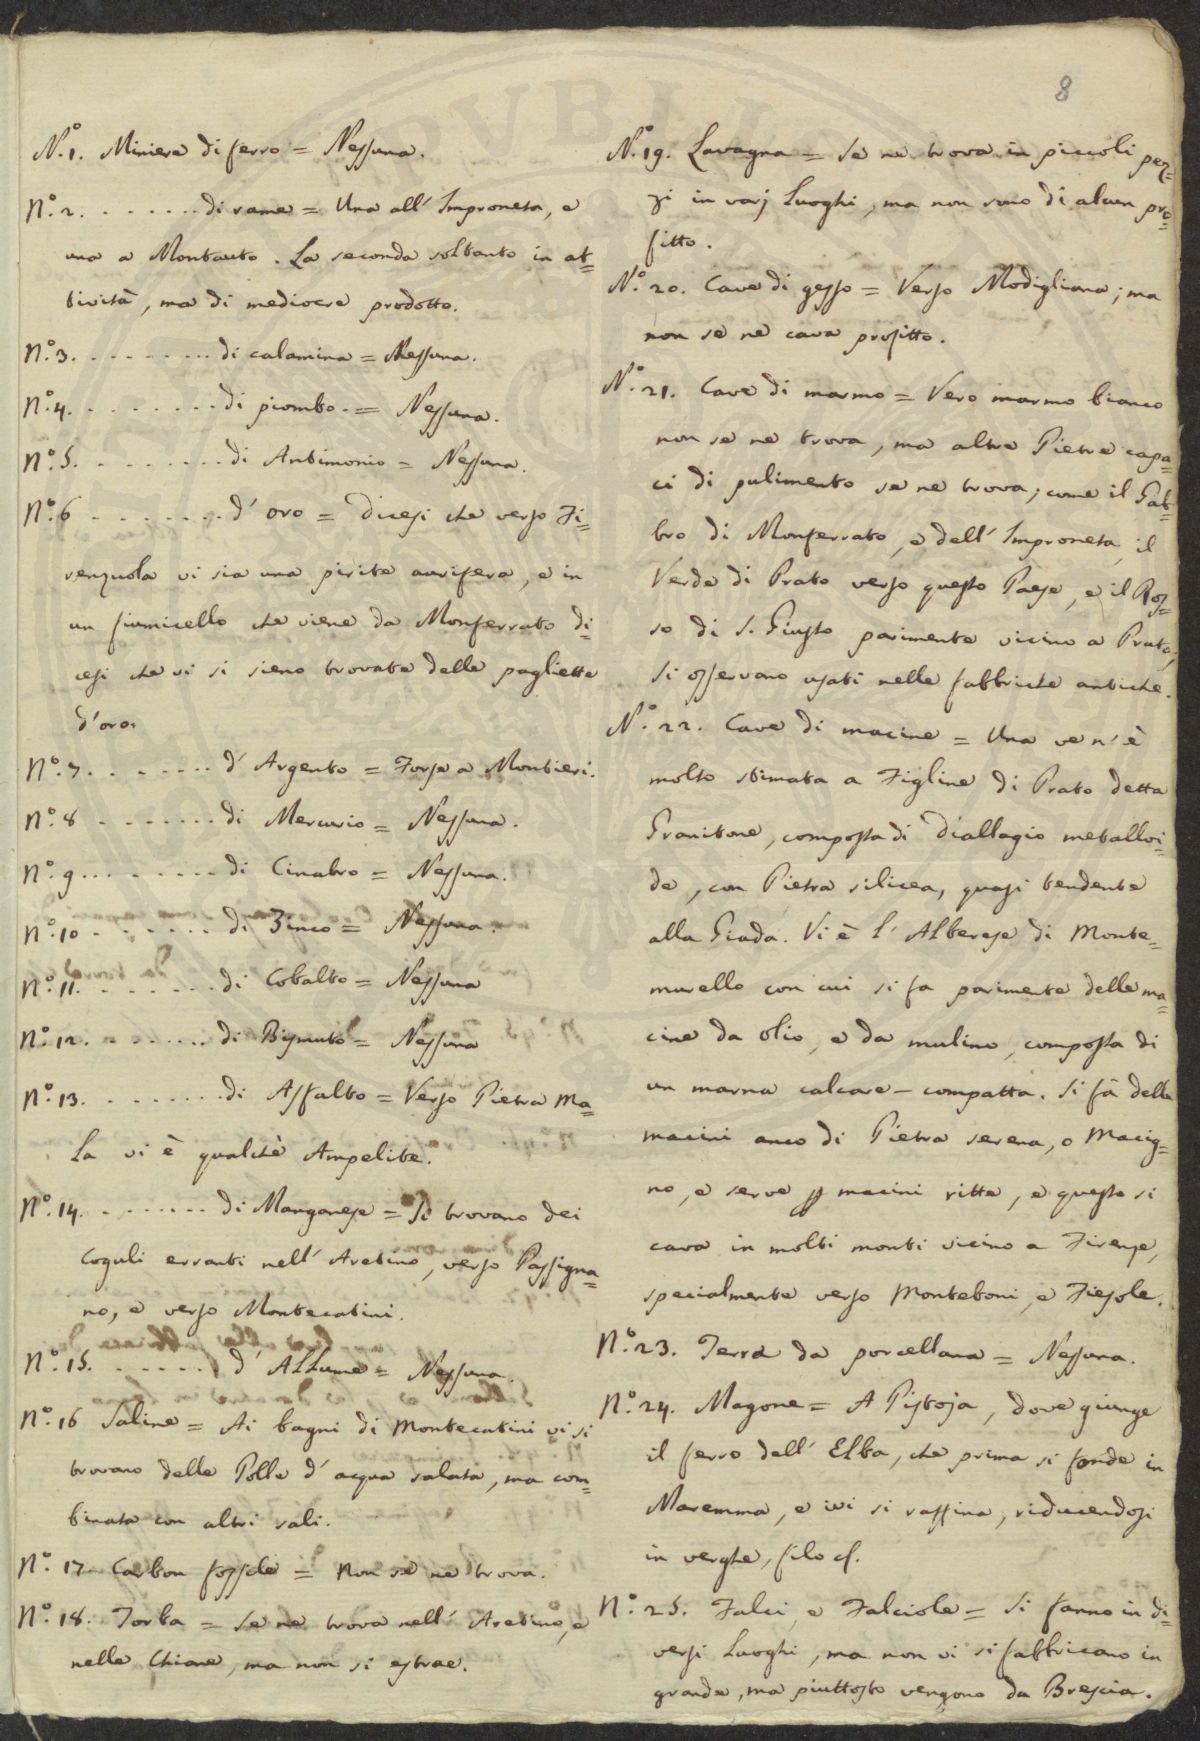 8
N.º 1. Miniere di ferro = Nessuna.
N.º 2. . . . . . . . di rame = Una all' Improneta, e
una a Montauto. La seconda soltanto in at=
tività, ma di mediocre prodotto.
N.º 3. . . . . . . . . di calamina = Nessuna.
N.º 4. . . . . . . . . di piombo. = Nessuna.
N.º 5. . . . . . . . . di Antimonio = Nessuna.
N.º 6 . . . . . . . . d' oro = Dicesi che verso Fi=
renzuola vi sia una pirite aurifera, e in
un fiumicello che viene da Monferrato di=
cesi che vi si sieno trovate delle pagliette
d'oro.
N.º 7. . . . . . . . d' Argento = Forse a Montieri.
N.º 8 . . . . . . . . di Mercurio = Nessuna.
N.º 9 . . . . . . . . di Cinabro = Nessuna.
N.º 10 . . . . . . . di Zinco = Nessuna.
N.º 11. . . . . . . . di Cobalto = Nessuna
N.º 12. . . . . . . . di Bismuto = Nessuna
N.º 13. . . . . . . . di Asfalto = Verso Pietra Ma=
La vi è qualchè Ampelite.
N.º 14. . . . . . . . di Manganese = Si trovano dei
coguli erranti nell' Aretino, verso Passigna=
no, e verso Montecatini.
N.º 15. . . . . . . d' ALLume = Nessuna.
N.º 16 Saline = Ai bagni di Montecatini vi si
trovano delle Polle d' acqua salata, ma com=
binata con altri sali.
N.º 17. Carbon fossile = Non se ne trova.
N.º 18. Torba = Se ne trova nell' Aretino, e
nelle Chiane, ma non si estrae.
N.º 19. Lavagna = Se ne trova in piccoli pez=
zi in varj Luoghi, ma non sono di alcun pro=
fitto.
N.º 20. Cave di gesso = Verso Modigliana; ma
non se ne cava profitto.
N.º 21. Cave di marmo = Vero marmo bianco
non se ne trova, ma altre Pietre capa=
ci di pulimento se ne trova; come il Gab=
bro di Monferrato, e dell' Improneta, il
Verde di Prato verso questo Paese, e il Ros=
so di S. Giusto parimente vicino a Prato;
si osservano usati nelle fabbriche antiche.
N.º 22. Cave di macine = Una ve n' è
molto stimata a Figline di Prato detta
Granitone, composta di Diallagio metalloi=
de, con Pietra silicea, quasi tendente
alla Giada. Vi è l' ALberese di Monte=
murello con cui si fa parimente delle ma=
cine da olio, e da mulino, composta di
un marna calcare - compatta. Si fà delle
macini anco di Pietra serena, o Macig=
no, e serve p macini ritte, e questo si
cava in molti monti vicino a Firenze,
specialmente verso Monteboni, e Fiesole.
N.º 23. Terra da porcellana = Nessuna.
N.º 24. Magone = A Pistoja, dove giunge
il ferro dell' ELba, che prima si fonde in
Maremma, e ivi si raffina, riducendosi
in verghe, filo cf.
N.º 25. Falci, e Falciole = Si fanno in di=
versi Luoghi, ma non vi si fabbricano in
grande, ma piuttosto vengono da Brescia.